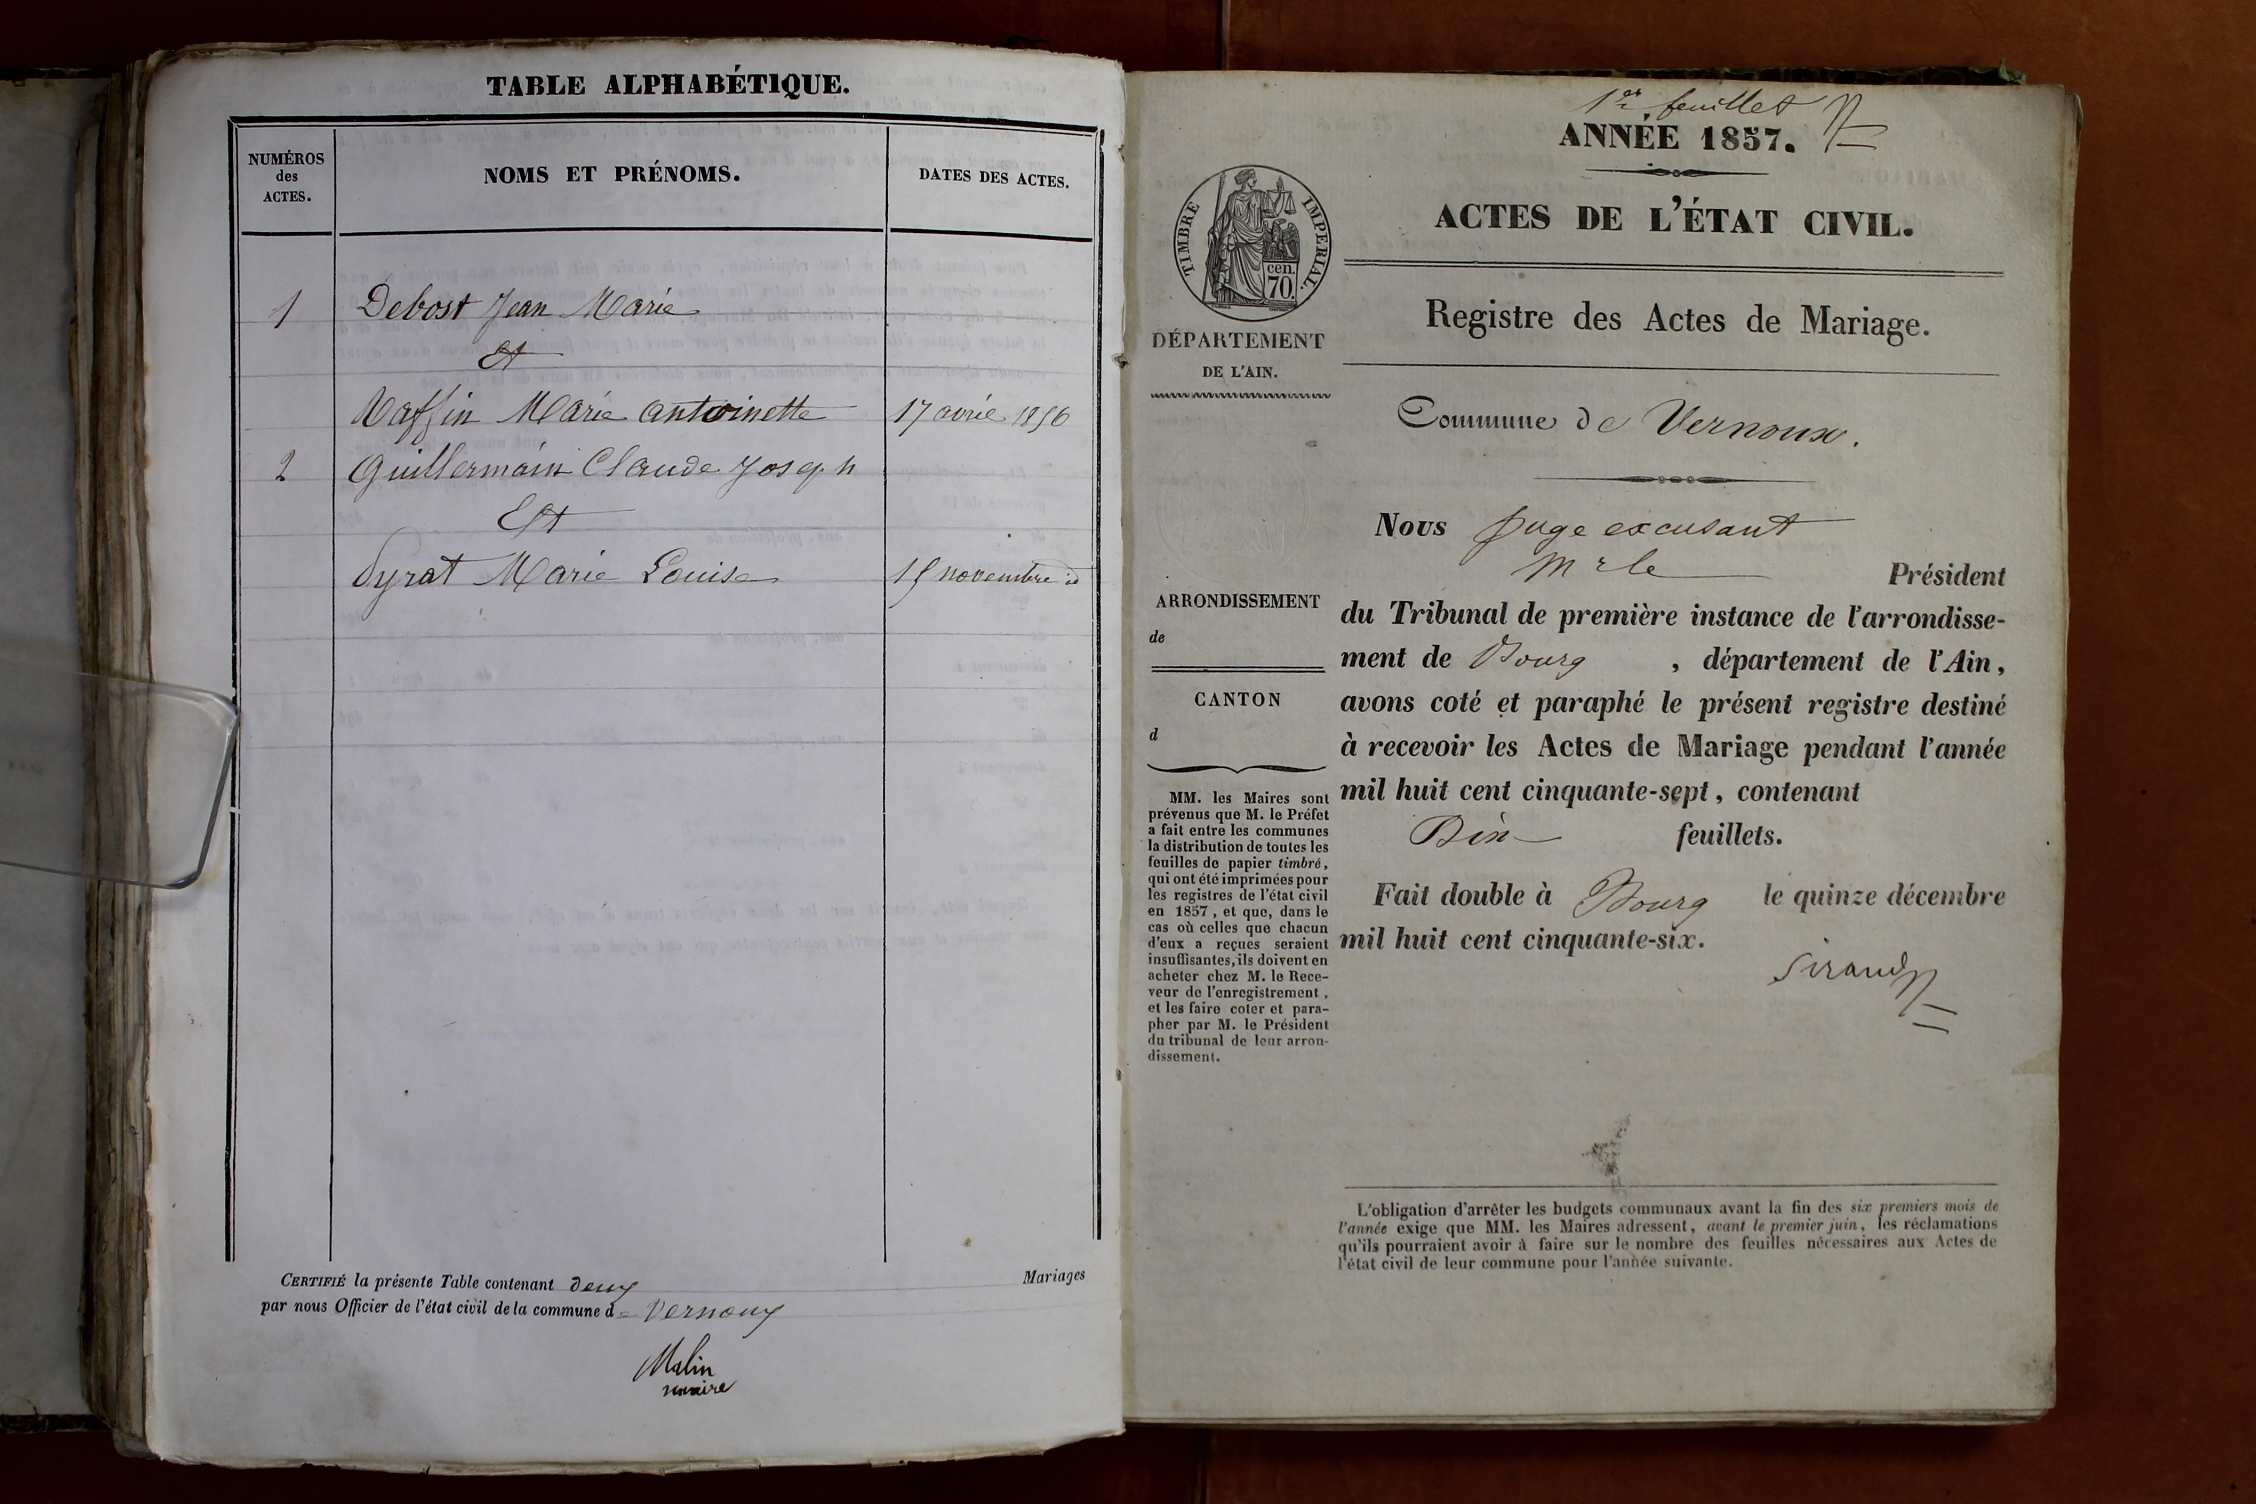 TABLE ALPHABÉTIQUE.
NUMÉROS
des
ACTES.
NOMS ET PRÉNOMS.
DATES DES ACTES.
1 Debost Jean Marie
Et
Raffin Marie antoinette 17 avril 1856
2 Guillermain Claude Joseph
Et
Syrat Marie Louise 15 novembre id
CERTIFIÉ la présente Table contenant deux Mariages
par nous Officier de l'état civil de la commune de Vernoux
Malin
maire
1er feuillet
ANNÉE 1857.
ACTES DE L'ÉTAT CIVIL.
TIMBRE IMPERIAL.
cen.
70.
DÉPARTEMENT
DE L'AIN.
Registre des Actes de Mariage.
Commune de Vernoux.
Nous Juge excusant
Mr le Président
du Tribunal de première instance de l'arrondisse-
ment de Bourg , département de l'Ain,
avons coté et paraphé le présent registre destiné
à recevoir les Actes de Mariage pendant l'année
mil huit cent cinquante-sept, contenant
Dix feuillets.
Fait double à Bourg le quinze décembre
mil huit cent cinquante-six.
Sirand
ARRONDISSEMENT
de
CANTON
d
MM. les Maires sont
prévenus que M. le Préfet
a fait entre les communes
la distribution de toutes les
feuilles de papier timbré,
qui ont été imprimées pour
les registres de l'état civil
en 1857, et que, dans le
cas où celles que chacun
d'eux a reçues seraient
insuffisantes, ils doivent en
acheter chez M. le Rece-
veur de l'enregistrement,
et les faire coter et para-
pher par M. le Président
du tribunal de leur arron-
dissement.
L'obligation d'arrêter les budgets communaux avant la fin des six premiers mois de
l'année exige que MM. les Maires adressent, avant le premier juin, les réclamations
qu'ils pourraient avoir à faire sur le nombre des feuilles nécessaires aux Actes de
l'état civil de leur commune pour l'année suivante.